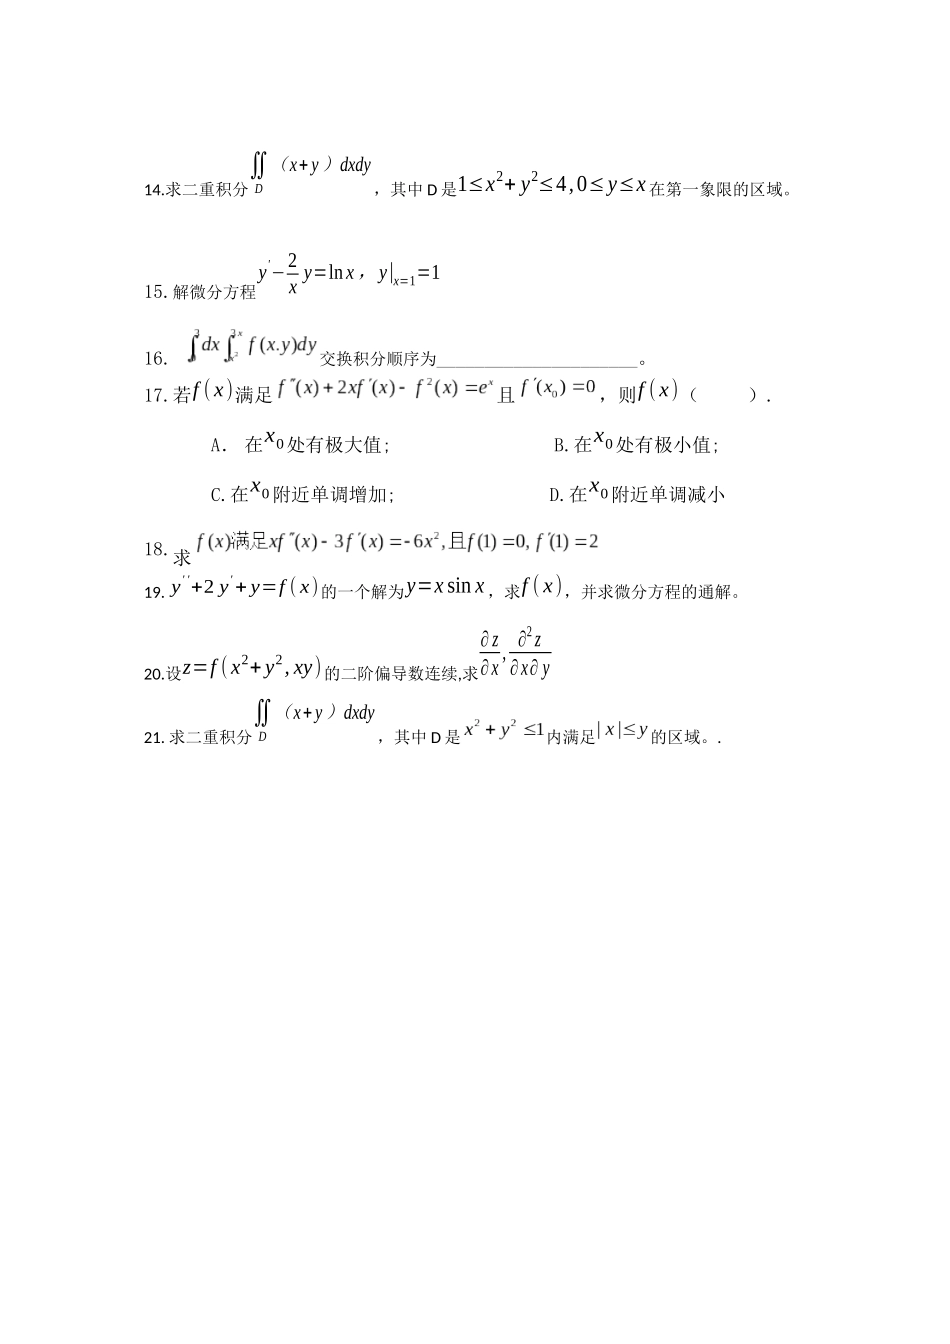 14.求二重积分∬_D（x+y）dxdy，其中 D 是1≤x²+y²≤4,0≤y≤x在第一象限的区域。
15.解微分方程y'−2/x y=ln x，y|ₓ₌₁=1
16. ∫₀³dx∫_{x²}^{3x}f(x.y)dy交换积分顺序为____________________。
17.若f(x)满足f″(x)+2xf′(x)-f²(x)=eˣ且f′(x₀)=0，则f(x)（ ）.
A. 在x₀处有极大值; B.在x₀处有极小值;
C.在x₀附近单调增加; D.在x₀附近单调减小
18.求f(x)满足xf″(x)-3f′(x)=-6x²,且f(1)=0,f′(1)=2
19. y''+2y'+y=f(x)的一个解为y=x sin x，求f(x)，并求微分方程的通解。
20.设z=f(x²+y²,xy)的二阶偏导数连续,求∂z/∂x,∂²z/∂x∂y
21. 求二重积分∬_D（x+y）dxdy，其中 D 是x²+y²≤1内满足|x|≤y的区域。.